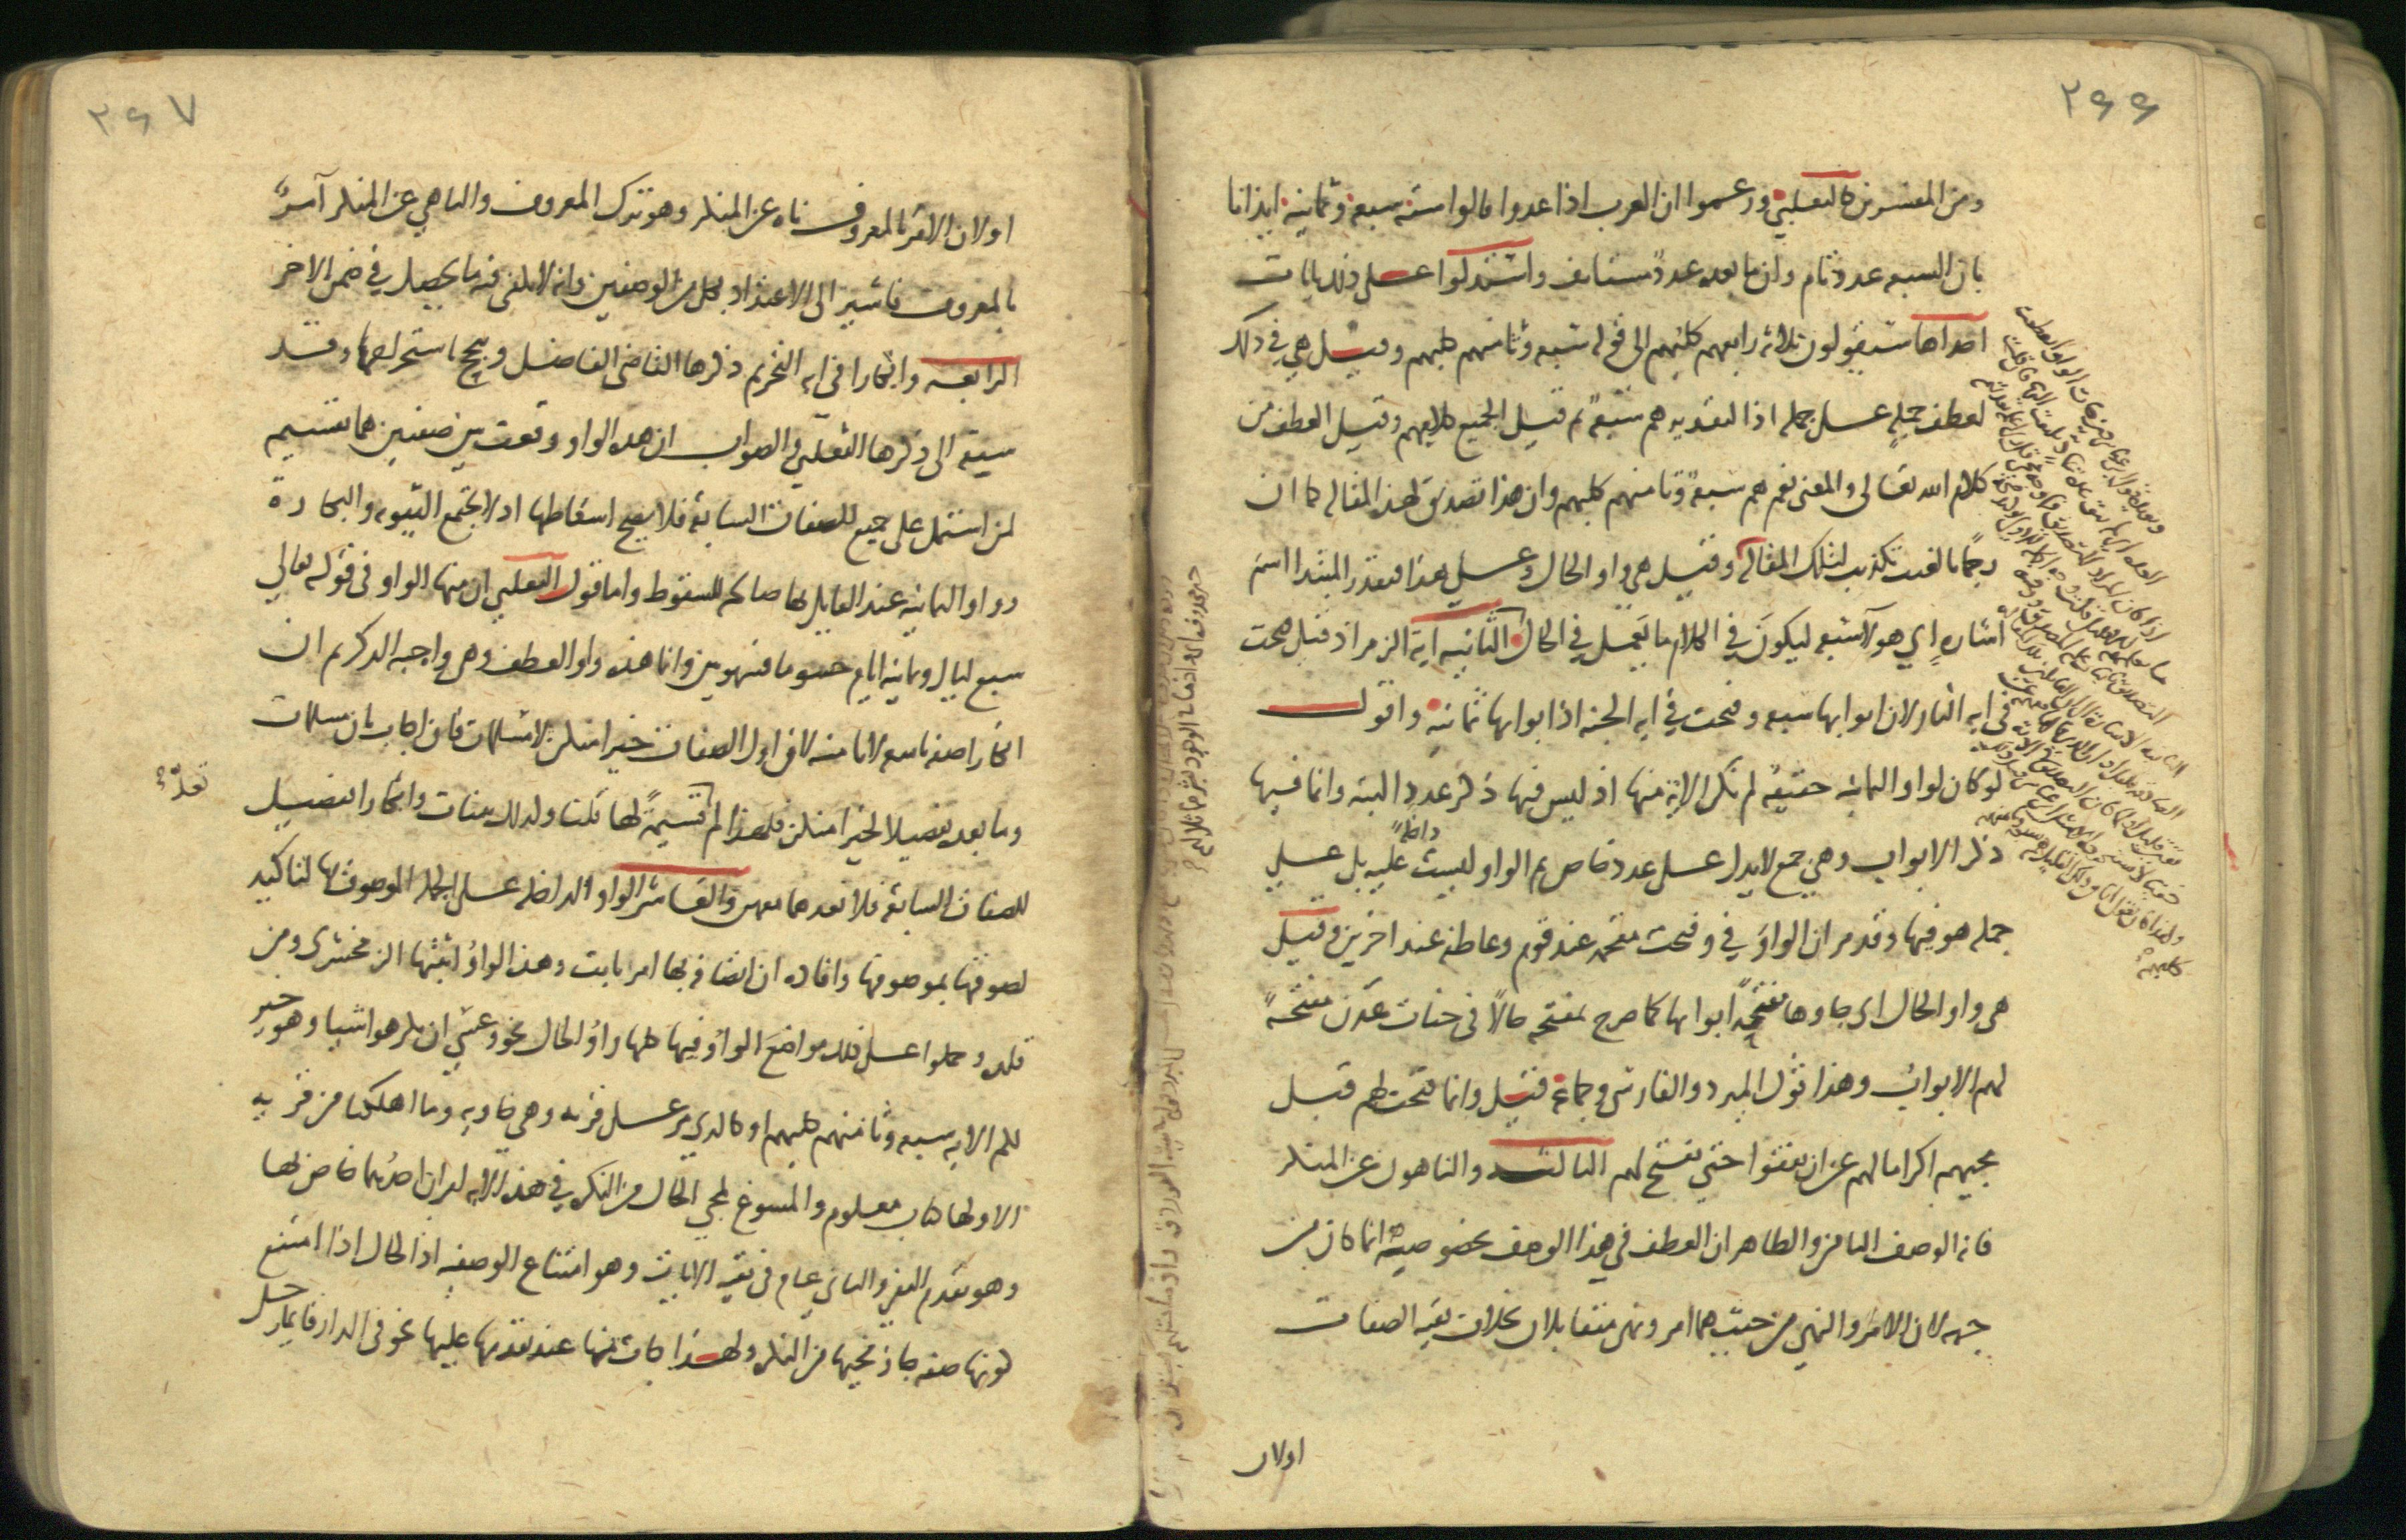 ٢٦٦
ومن المفسرين كالثعلبي وزعموا ان العرب اذا عدوا قالوا ستة سبعة وثمانية ايذانا
بان السبعة عدد تام وان ما بعده عدد مستانف واستدلوا على ذلك بايات
احداها سيقولون ثلاثة رابعهم كلبهم الى قوله سبعة وثامنهم كلبهم وقيل هي في ذلك
لعطف جملة على جملة اذ التقدير هم سبعة ثم قيل الجميع كلامهم وقيل العطف من
كلام الله تعالى والمعنى نعم هم سبعة وثامنهم كلبهم وان هذا تصديق لهذه المقالة كما ان
رجما بالغيب تكذيب لتلك المقالة وقيل هي واو الحال وعلى هذا فيقدر المبتدا اسم
اشارة اي هولاء سبعة ليكون في الكلام ما يعمل في الحال الثانية اية الزمر اذ قيل فتحت
في اية النار لان ابوابها سبعة وفتحت في اية الجنة اذ ابوابها ثمانية واقول
لو كان لواو الثمانية حقيقة لم تكن الاية منها اذ ليس فيها ذكر عدد البتة وانما فيها
ذكر الابواب وهي جمع لا يدل على عدد خاص ثم الواو ليست داخلة عليه بل على
جملة هو فيها وقد مر ان الواو في وفتحت مقحمة عند قوم وعاطفة عند اخرين وقيل
هي واو الحال اي جاوها مفتحة ابوابها كما صرح بمفتحة حالا في جنات عدن مفتحة
لهم الابواب وهذا قول المبرد والفارسي وجماعة قيل وانما فتحت لهم قبل
مجيهم اكراما لهم عن ان يقفوا حتى تفتح لهم الثالثة والناهون عن المنكر
فانه الوصف الثامن والظاهر ان العطف في هذا الوصف بخصوصيته انما كان من
جهة لان الامر والنهي من حيث هما امر ونهي متقابلان بخلاف بقية الصفات
اولان
٢٦٧
اولان الامر بالمعروف ناه عن المنكر وهو ترك المعروف والناهي عن المنكر آمر
بالمعروف فاشير الى الاعتداد بكل من الوصفين وانه لا يكفي فيه ما يحصل في ضمن الاخر
الرابعة وابكارا في اية التحريم ذكرها القاضي الفاضل وتبجح باستخراجها وقد
سبقه الى ذكرها الثعلبي والصواب ان هذه الواو وقعت بين صفتين هما تقسيم
لمن اشتمل على جميع الصفات السابقة فلا يصح اسقاطها اذ لا تجتمع الثيوبة والبكارة
وواو الثمانية عند القايل بها صالحة للسقوط واما قول الثعلبي ان منها الواو في قوله تعالى
سبع ليال وثمانية ايام حسوما فسهو بين وانما هذه واو العطف وهي واجبة الذكر ثم ان
ابكارا صفة تاسعة لا ثامنة لان اول الصفات خيرا منكن لا مسلمات فان اجاب بان مسلمات
وما بعده تفصيلا لخيرا منكن فلهذا لم تعد قسيمة لها قلنا وكذلك ثيبات وابكارا تفصيل
للصفات السابقة فلا نعدهما معهن والعاشر الواو الداخلة على الجملة الموصوف بها لتاكيد
لصوقها بموصوفها وافادة ان اتصافه بها امر ثابت وهذه الواو اثبتها الزمخشري ومن
قلده وحملوا على ذلك مواضع الواو فيها كلها واو الحال نحو وعسى ان تكرهوا شيا وهو خير
لكم الاية سبعة وثامنهم كلبهم او كالذي مر على قرية وهي خاوية وما اهلكنا من قرية
الا ولها كتاب معلوم والمسوغ لمجي الحال من النكرة في هذه الاية امران احدهما خاص بها
وهو تقدم النفي والثاني عام في بقية الايات وهو امتناع الوصفية اذ الحال اذا امتنع
كونها صفة جاز مجيها من النكرة ولهذا جات منها عند تقدمها عليها نحو في الدار قايما رجل